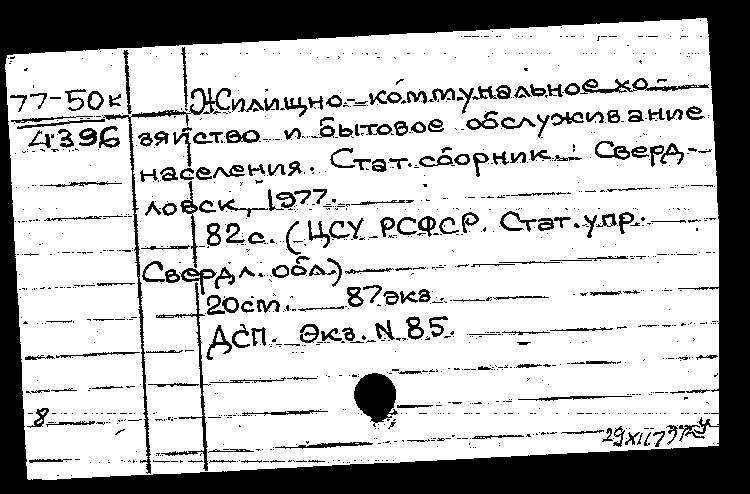 77-50к
4396
Жилищно-коммунальное хо-
зяйство и бытовое обслуживание
населения. Стат. сборник. Сверд-
ловск, 1977.
82с. (ЦСУ РСФСР. Стат. упр.
Свердл. обл.)
20см. 87экз.
ДСП. Экз. N 85.
8